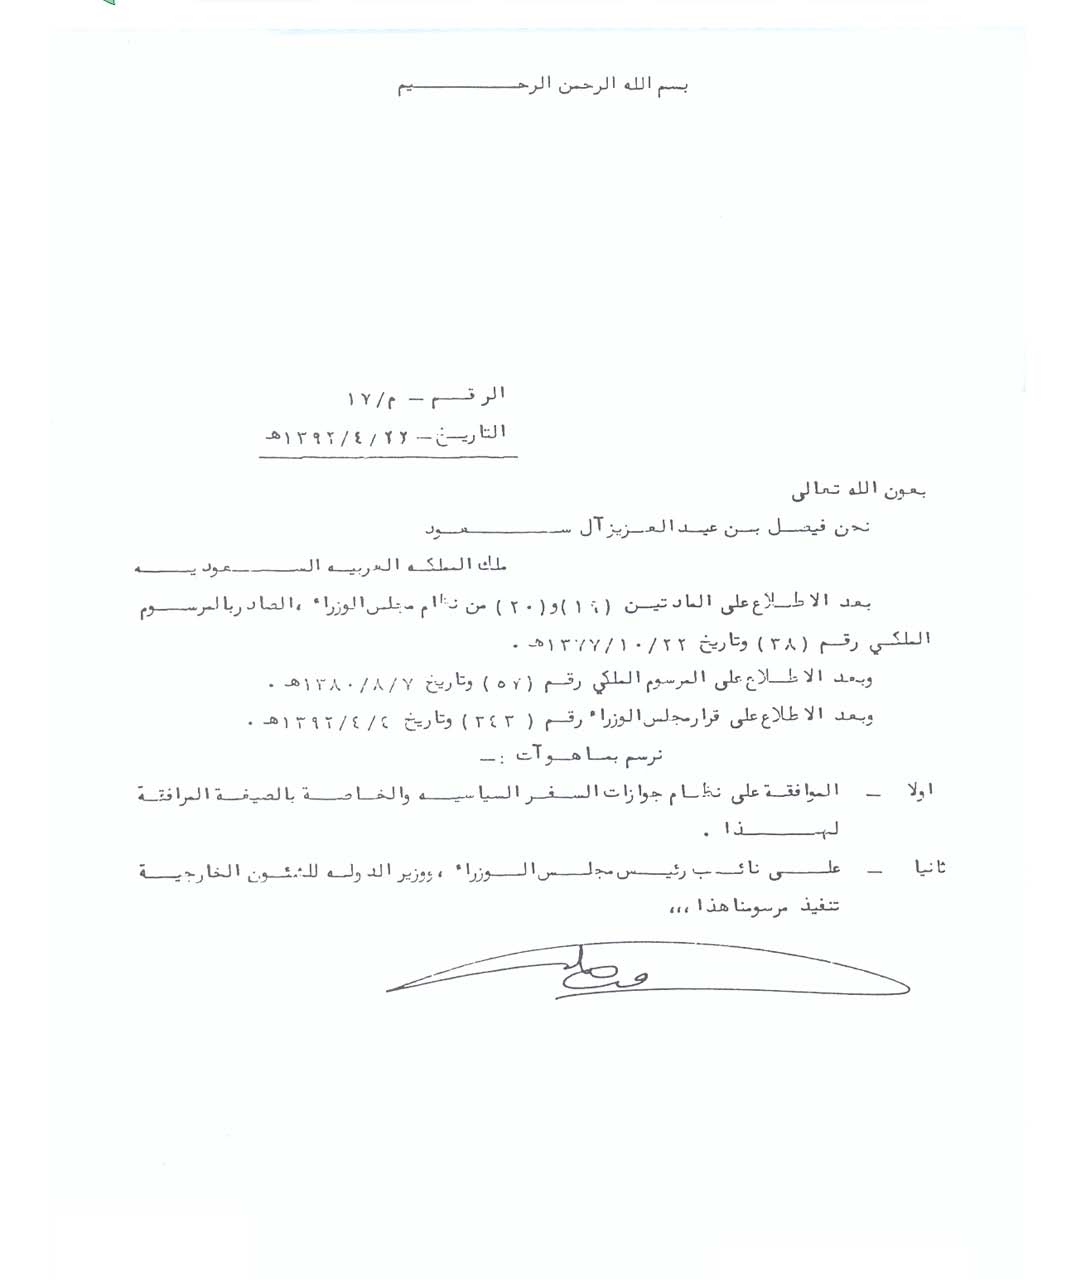 بسم الله الرحمن الرحيم
الرقم – م/١٧
التاريخ – ١٣٩٢/٤/٢٢هـ
بعون الله تعالى
نحن فيصل بن عبد العزيز آل سعود
ملك المملكه العربيه السعوديه
بعد الاطلاع على المادتين (١٩) و(٢٠) من نظام مجلس الوزراء ، الصادر بالمرسوم
الملكي رقم (٣٨) وتاريخ ١٣٧٧/١٠/٢٢هـ .
وبعد الاطلاع على المرسوم الملكي رقم (٥٧) وتاريخ ١٣٨٠/٨/٧هـ .
وبعد الاطلاع على قرار مجلس الوزراء رقم (٢٤٣) وتاريخ ١٣٩٢/٤/٤هـ .
نرسم بما هو آت :–
اولا – الموافقة على نظام جوازات السفر السياسيه والخاصة بالصيغة المرافقة
لهذا .
ثانيا – على نائب رئيس مجلس الوزراء ، ووزير الدوله للشئون الخارجية
تنفيذ مرسومنا هذا ،،،